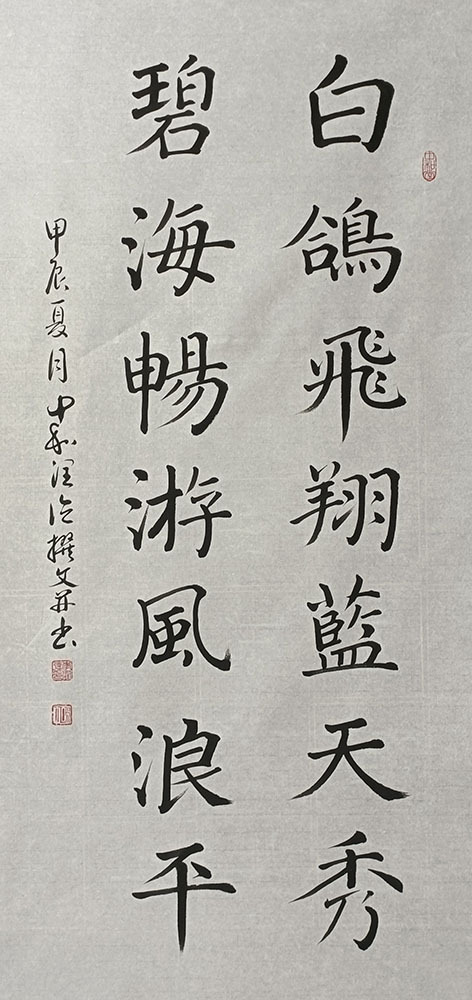 白鴿飛翔藍天秀
碧海暢游風浪平
甲辰夏月中和 撰文并书